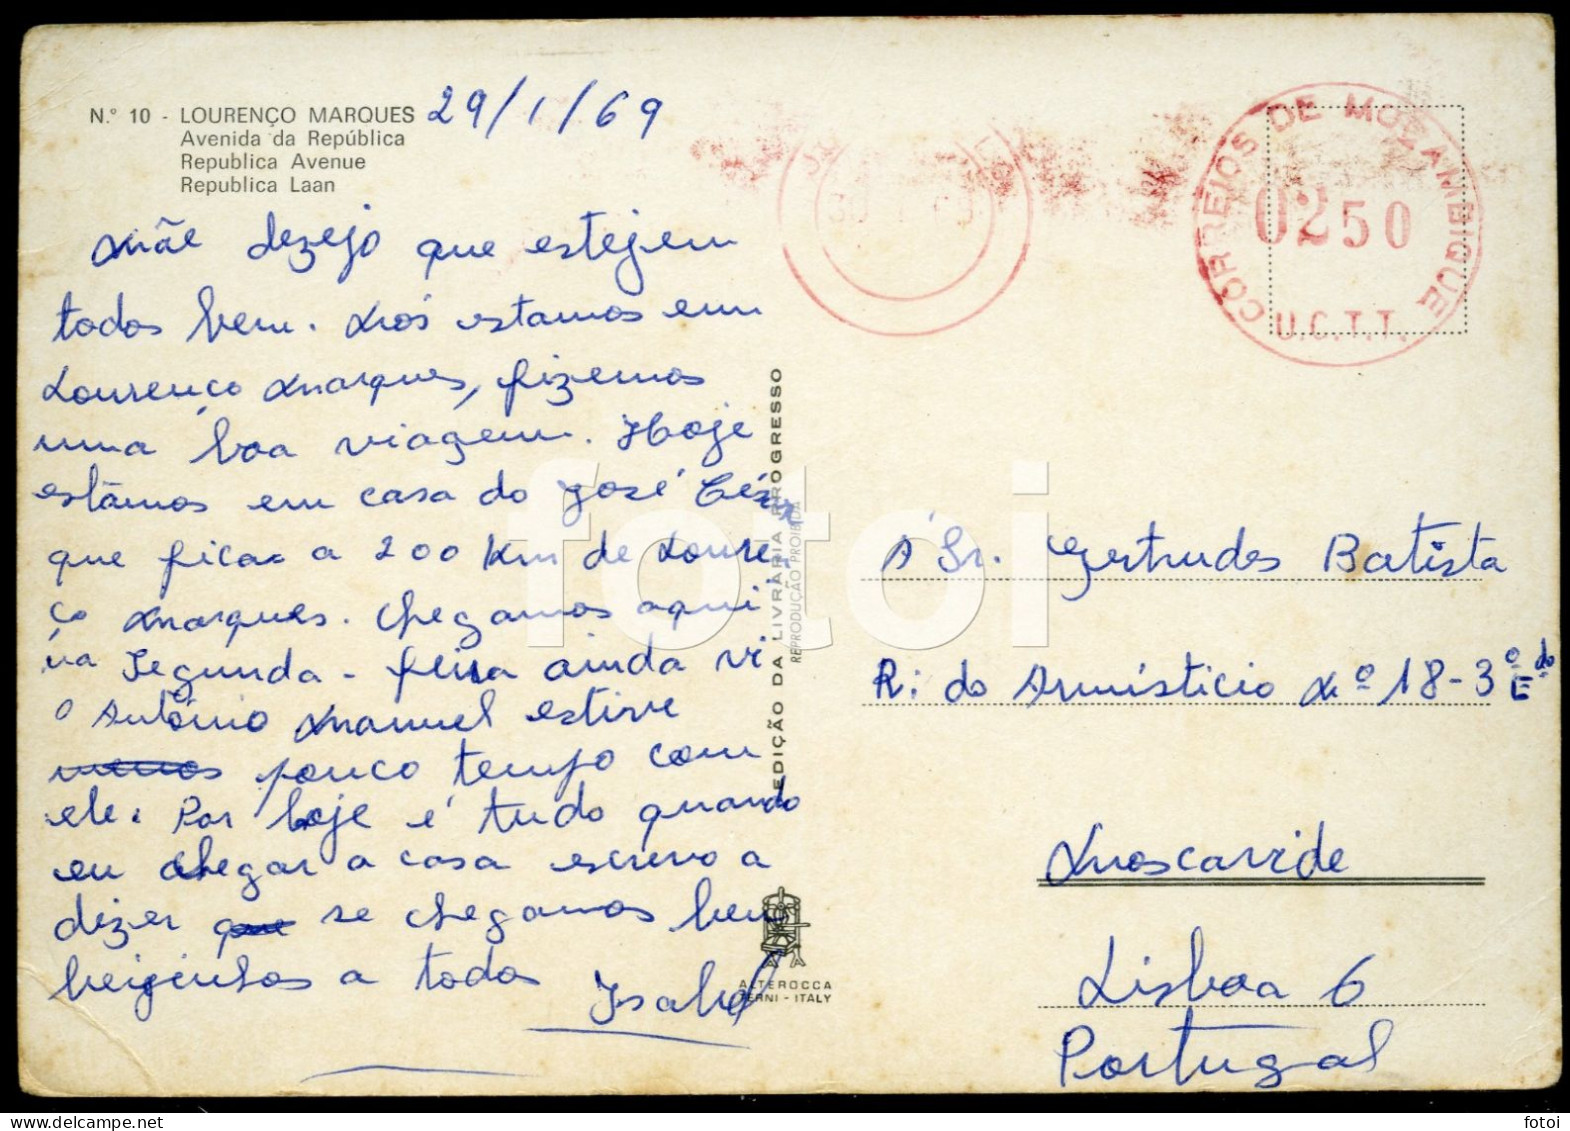 N.º 10 - LOURENÇO MARQUES 29/1/69
Avenida da República
Republica Avenue
Republica Laan
Mãe dezejo que estejem
todos bem. Nós estamos em
Lourenço Marques, fizemos
uma boa viagem. Hoje
estâmos em casa do José Césár
que fica a 200 Km de Loure
ço Marques. Chegamos aqui
na Segunda-feira ainda vi
o António Manuel estive
menos pouco tempo com
ele. Por hoje é tudo quando
eu chegar a casa escrevo a
dizer que se chegamos bem
beijinhos a todos
Isabel
CORREIOS DE MOÇAMBIQUE
0250
U.C.T.T.
EDIÇÃO DA LIVRARIA PROGRESSO
REPRODUÇÃO PROIBIDA
ALTEROCCA
TERNI - ITALY
Á Sr. Gertrudes Batista
R. do Armistício Nº 18-3º Edo
Moscavide
Lisboa 6
Portugal
fotoi
www.delcampe.net
fotoi